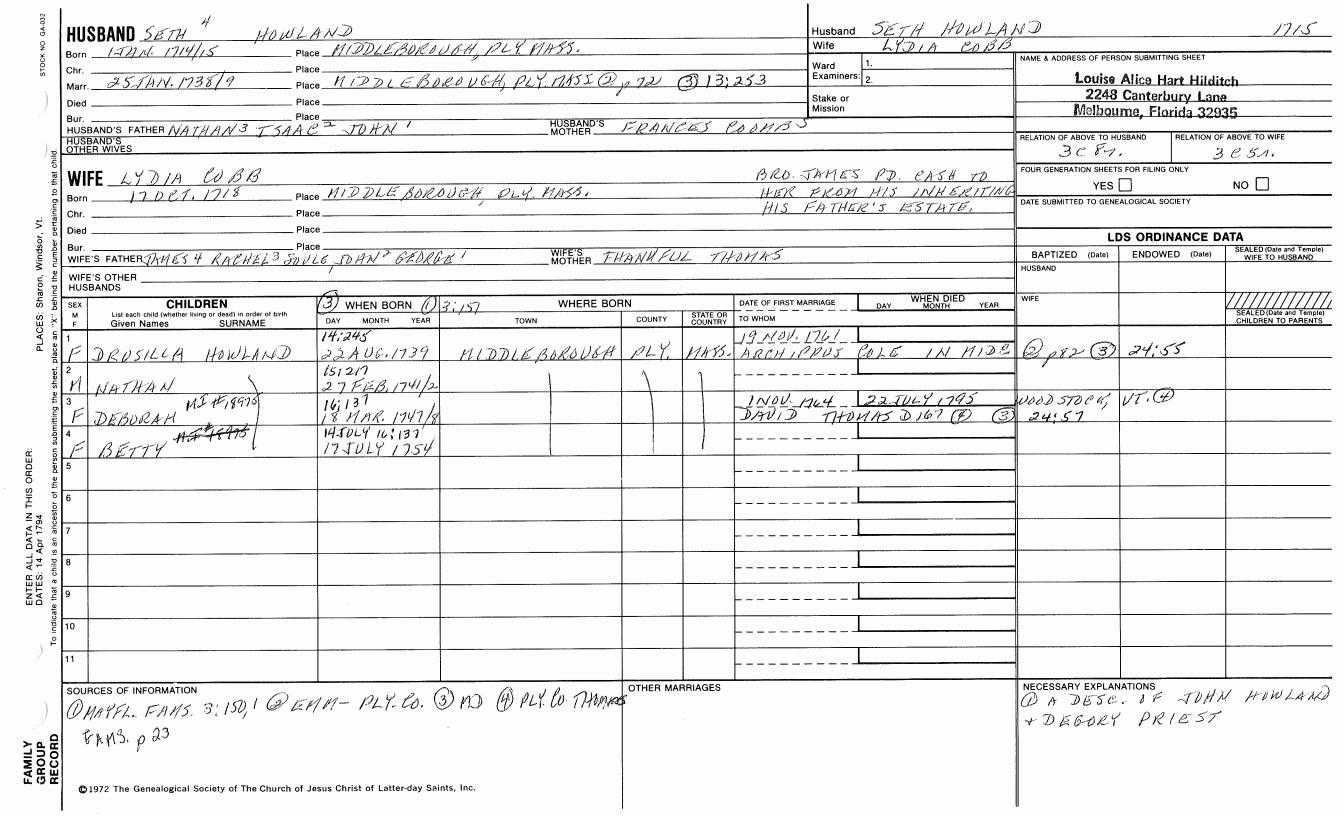 STOCK NO. GA-032
HUSBAND SETH 4 HOWLAND
Born 1 JAN. 1714/15 Place MIDDLEBOROUGH, PLY. MASS.
Chr. Place
Marr. 25 JAN. 1738/9 Place MIDDLEBOROUGH, PLY. MASS ② p 72 ③ 13;253
Died Place
Bur. Place
HUSBAND'S FATHER NATHAN 3 ISAAC 2 JOHN 1 HUSBAND'S MOTHER FRANCES COOMBS
HUSBAND'S OTHER WIVES
WIFE LYDIA COBB
Born 17 OCT. 1718 Place MIDDLEBOROUGH, PLY. MASS.
Chr. Place
Died Place
Bur. Place
BRO. JAMES PD. CASH TO
HER FROM HIS INHERITING
HIS FATHER'S ESTATE.
WIFE'S FATHER JAMES 4 RACHEL 3 SOULE JOHN 2 GEORGE 1 WIFE'S MOTHER THANKFUL THOMAS
WIFE'S OTHER HUSBANDS
Husband SETH HOWLAND 1715
Wife LYDIA COBB
Ward Examiners: 1.
2.
Stake or Mission
NAME & ADDRESS OF PERSON SUBMITTING SHEET
Louise Alice Hart Hilditch
2248 Canterbury Lane
Melbourne, Florida 32935
RELATION OF ABOVE TO HUSBAND RELATION OF ABOVE TO WIFE
3C8r. 3C5r.
FOUR GENERATION SHEETS FOR FILING ONLY
YES NO
DATE SUBMITTED TO GENEALOGICAL SOCIETY
LDS ORDINANCE DATA
BAPTIZED (Date) ENDOWED (Date) SEALED (Date and Temple) WIFE TO HUSBAND
HUSBAND
WIFE
SEALED (Date and Temple) CHILDREN TO PARENTS
SEX M F
CHILDREN
List each child (whether living or dead) in order of birth
Given Names SURNAME
③ WHEN BORN ① 3;157
DAY MONTH YEAR
WHERE BORN
TOWN COUNTY STATE OR COUNTRY
DATE OF FIRST MARRIAGE
TO WHOM
WHEN DIED
DAY MONTH YEAR
1 14;245 19 NOV. 1761
F DRUSILLA HOWLAND 22 AUG. 1739 MIDDLEBOROUGH PLY. MASS. ARCHIPPUS COLE IN MIDO ② p82 ③ 24;55
2 15;217
M NATHAN 27 FEB. 1741/2
3 MI #18975 16;137 1 NOV. 1764 22 JULY 1795 WOODSTOCK, VT. ④
F DEBORAH 18 MAR. 1747/8 DAVID THOMAS D167 ② ③ 24;57
4 MI #18975 14 JULY 16;137
F BETTY 17 JULY 1754
5
6
7
8
9
10
11
SOURCES OF INFORMATION
① MAYFL. FAMS. 3;150,1 ② EMM - PLY. CO. ③ MD ④ PLY. CO. THOMAS
FAMS. p 23
OTHER MARRIAGES
NECESSARY EXPLANATIONS
① A DESC. OF JOHN HOWLAND
+ DEGORY PRIEST
©1972 The Genealogical Society of The Church of Jesus Christ of Latter-day Saints, Inc.
FAMILY GROUP RECORD
ENTER ALL DATA IN THIS ORDER:
DATES: 14 Apr 1794 PLACES: Sharon, Windsor, Vt.
To indicate that a child is an ancestor of the person submitting the sheet, place an "X" behind the number pertaining to that child.